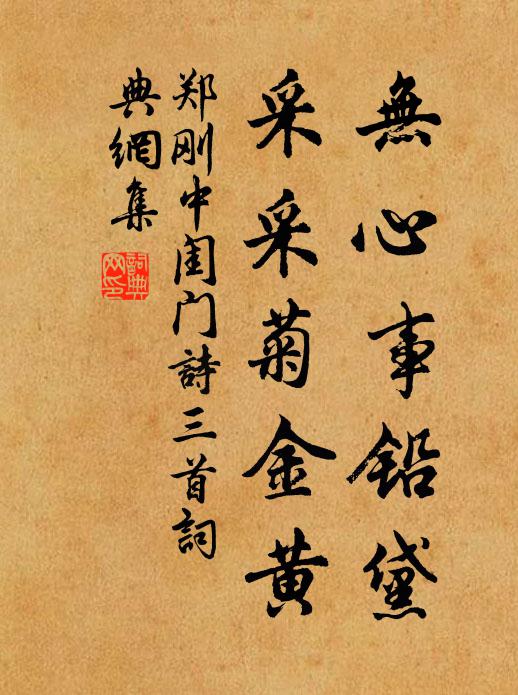 無心事鉛黛
采采菊金黄
郑刚中闺门詩三首詞
典網集
詞典网印